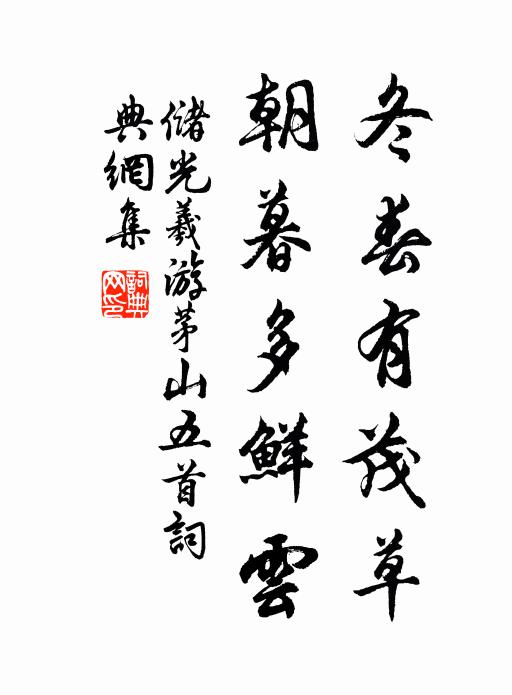 冬春有茂草
朝暮多鮮雲
儲光羲游茅山五首詞
典網集
詞典
网印